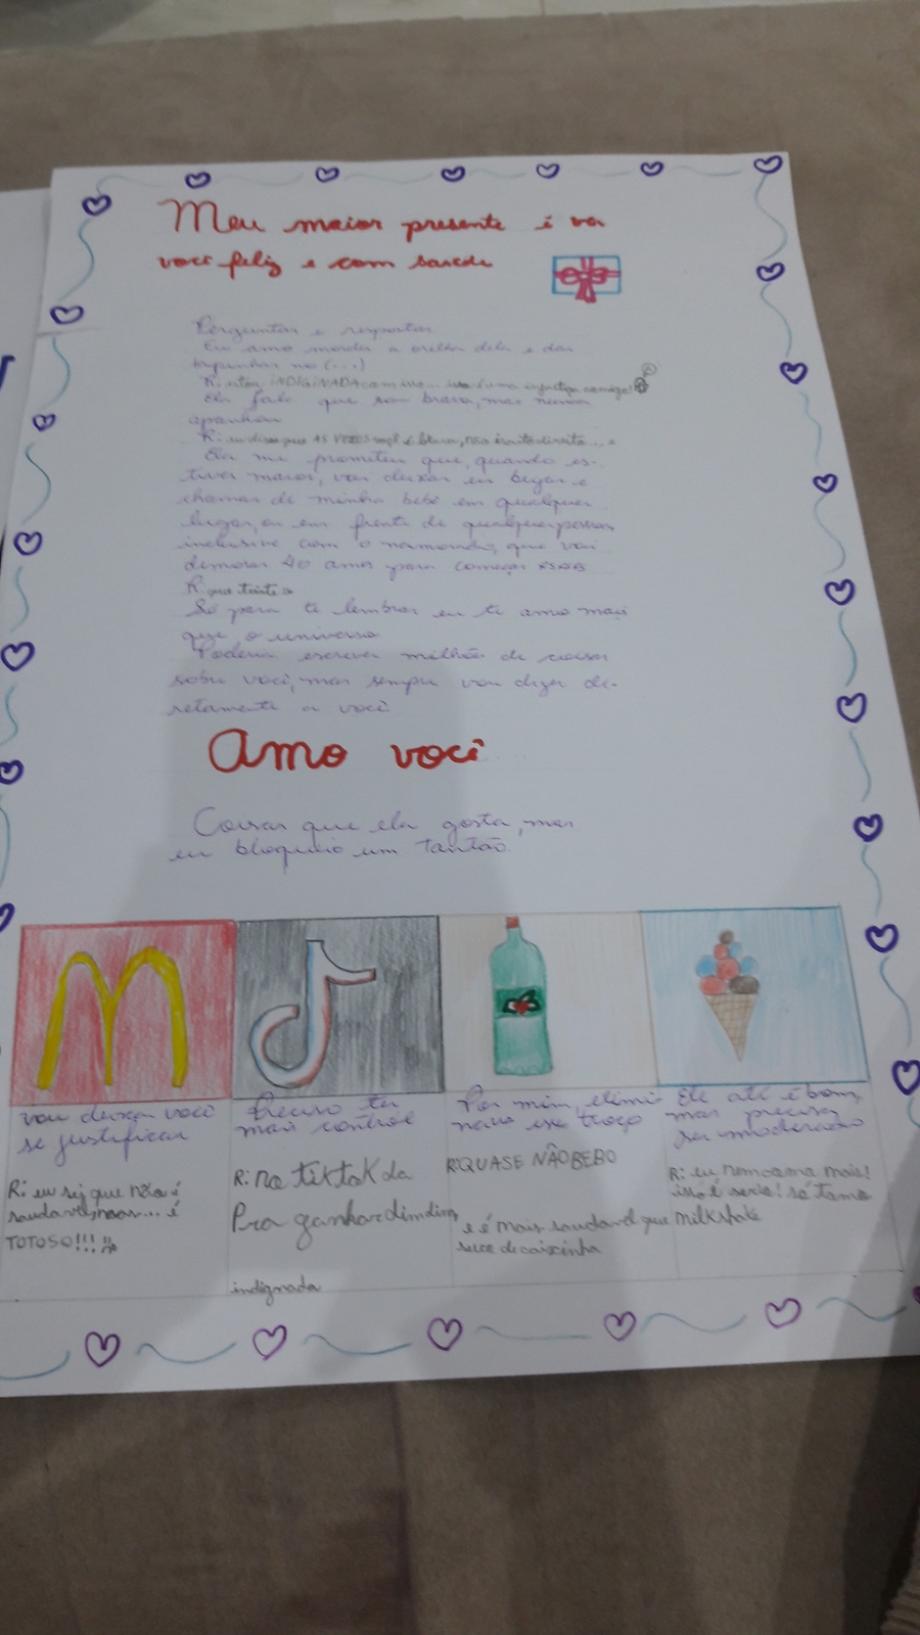 Meu maior presente é ver
você feliz e com saúde
Perguntas e respostas
Eu amo morder a orelha dela e dar
tapinhas no (...)
R: estou INDIGINADA com isso... isso é uma injustiça comigo!
Ela fala que sou brava, mas nunca
apanhou
R: eu disse que AS VEZES
Ela me prometeu que, quando es-
tiver maior, vai deixar eu beijar e
chamar de minha bebê em qualquer
lugar, ou em frente de qualquer pessoa,
inclusive com o namorado, que vai
demorar 40 anos para começar
R: que triste
Só para te lembrar eu te amo mais
que o universo
Poderia escrever milhões de coisas
sobre você, mas sempre vou dizer di-
retamente a você
Amo você
Coisas que ela gosta, mas
eu bloqueio um tantão.
vou deixar você
se justificar
Preciso ter
mais contrôle
Por mim, elimi
nava esse troço
Ele até é bom,
mas precisa
ser moderado
R: eu sei que não é
saudavel, mas... é
TOTOSO!!!
R: no tiktok da
Pra ganhar dimdim
indignada
R: QUASE NÃO BEBO
e é mais saudavel que
suco de caixinha
R: eu nem como mais!
isso é serio! só tomo
milkshake